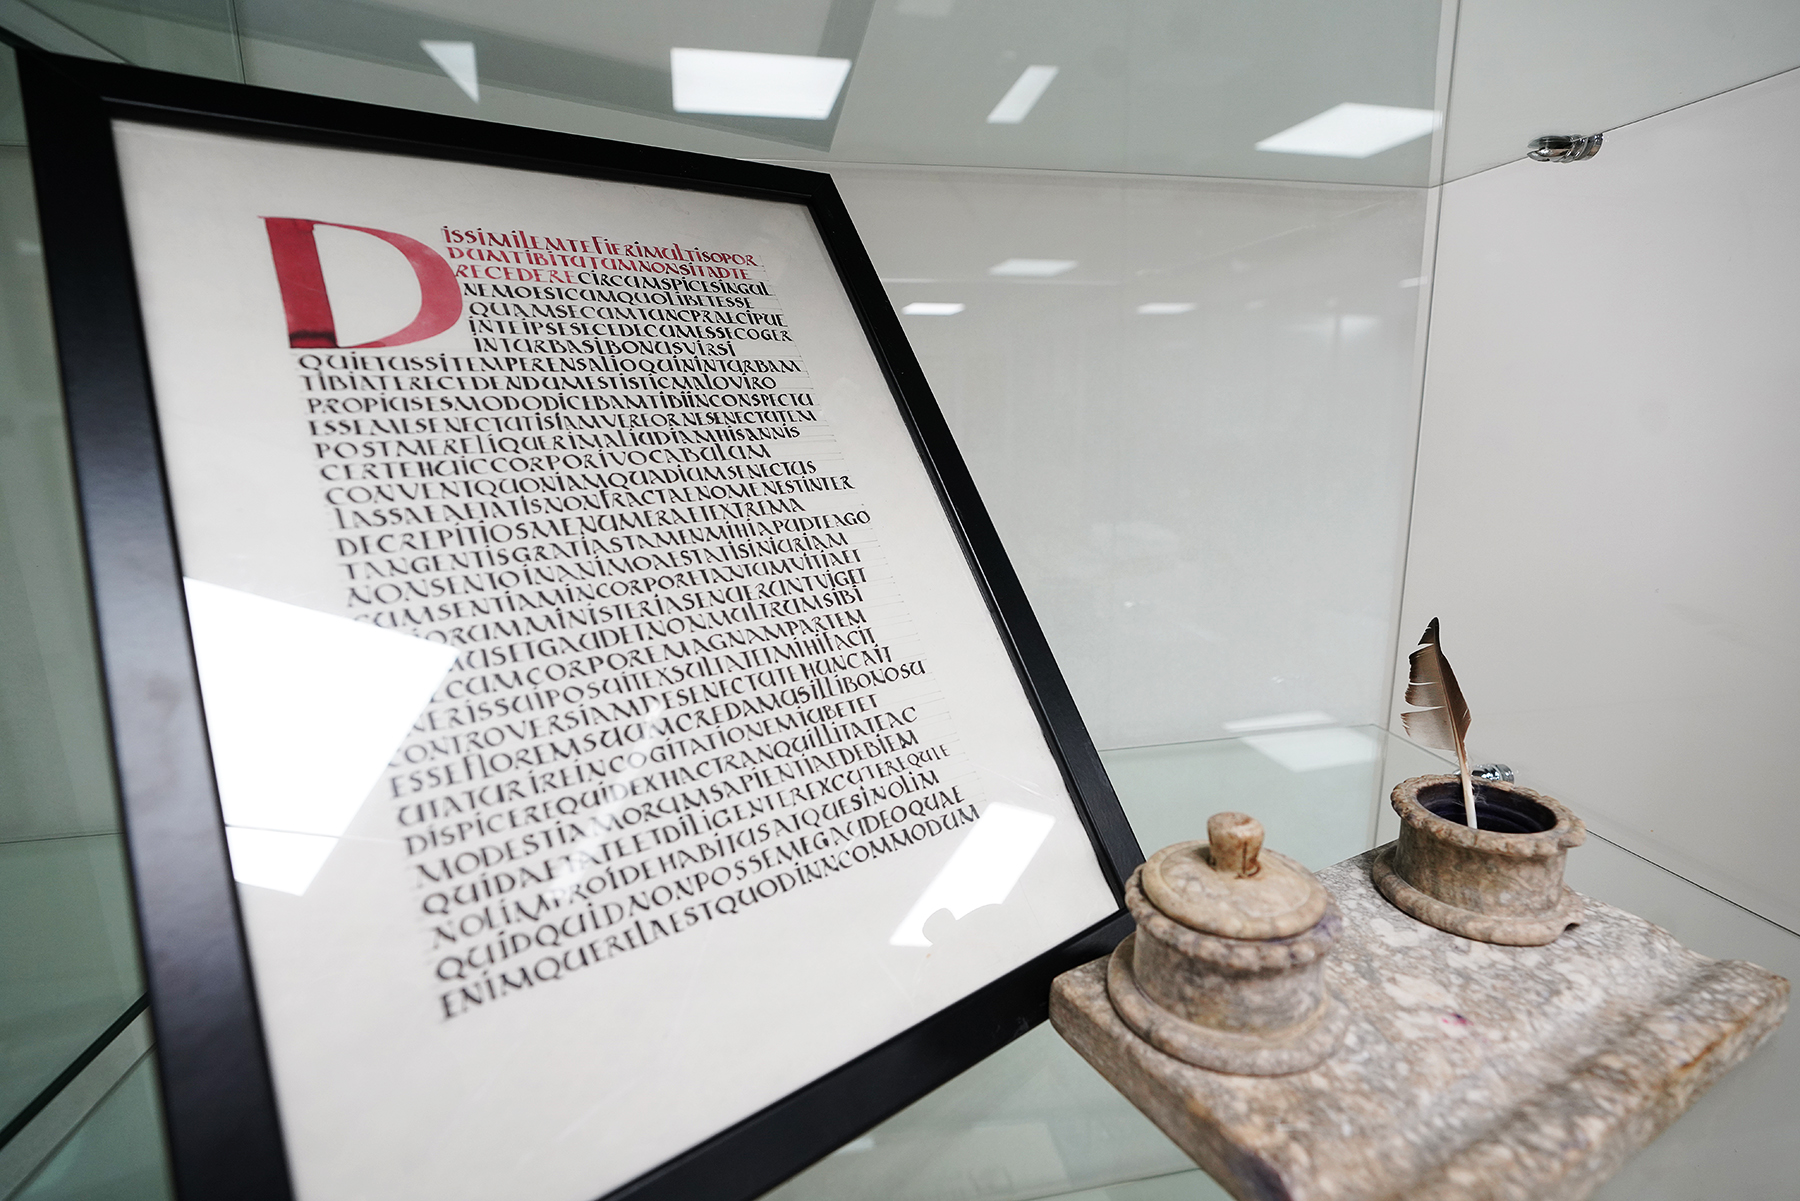 DISSIMILEMTEFIERIMULTISOPOR
DUMTIBITUTUMNONSITADTE
RECEDERECIRCUMSPICESINGUL
NEMOESTCUMQUOLIBETESSE
QUAMSECUMTUNCPRAECIPUE
INTEIPSESECEDECUMESSECOGER
INTURBASIBONUSVIRSI
QUIETUSSITEMPERENSALIOQUININTURBAM
TIBIATERECEDENDUMESTISTICMALOVIRO
PROPIUSESMODODICEBAMTIBIINCONSPECTU
ESSEMESENECTUTISIAMVEREORNESENECTUTEM
POSTMERELIQUERIMALIUDIAMHISANNIS
CERTEHUICCORPORIVOCABULUM
CONVENITQUONIAMQUADIUMSENECTUS
LASSAEAETATISNONFRACTAENOMENESTINTER
DECREPITIOSMENUMERAETEXTREMA
TANGENTISGRATIASTAMENMIHIAPUDTEAGO
NONSENTIOINANIMOAESTATISINIURIAM
CUMSENTIAMINCORPORETANTUMVITIAET
ORUMMINISTERIASENUERUNTVIGET
USETGAUDETNONMULTRUMSIBI
ECUMCORPOREMAGNAMPARTEM
NERISSUIPOSUITEXSULTATETMIHIFACIT
CONTROVERSIAMDESENECTUTEHUNCAIT
ESSEFLOREMSUUMCREDAMUSILLIBONOSU
UTATURIREINCOGITATIONEMIUBETET
DISPICEREQUIDEXHACTRANQUILLITATEAC
MODESTIAMORUMSAPIENTIAEDEBIEM
QUIDAETATEETDILIGENTEREXCUTEREQUIE
NOLIMPROIDEHABITUSATQUESINOLIM
QUIDQUIDNONPOSSEMEGAUDEOQUAE
ENIMQUERELAESTQUODINNCOMMODUM